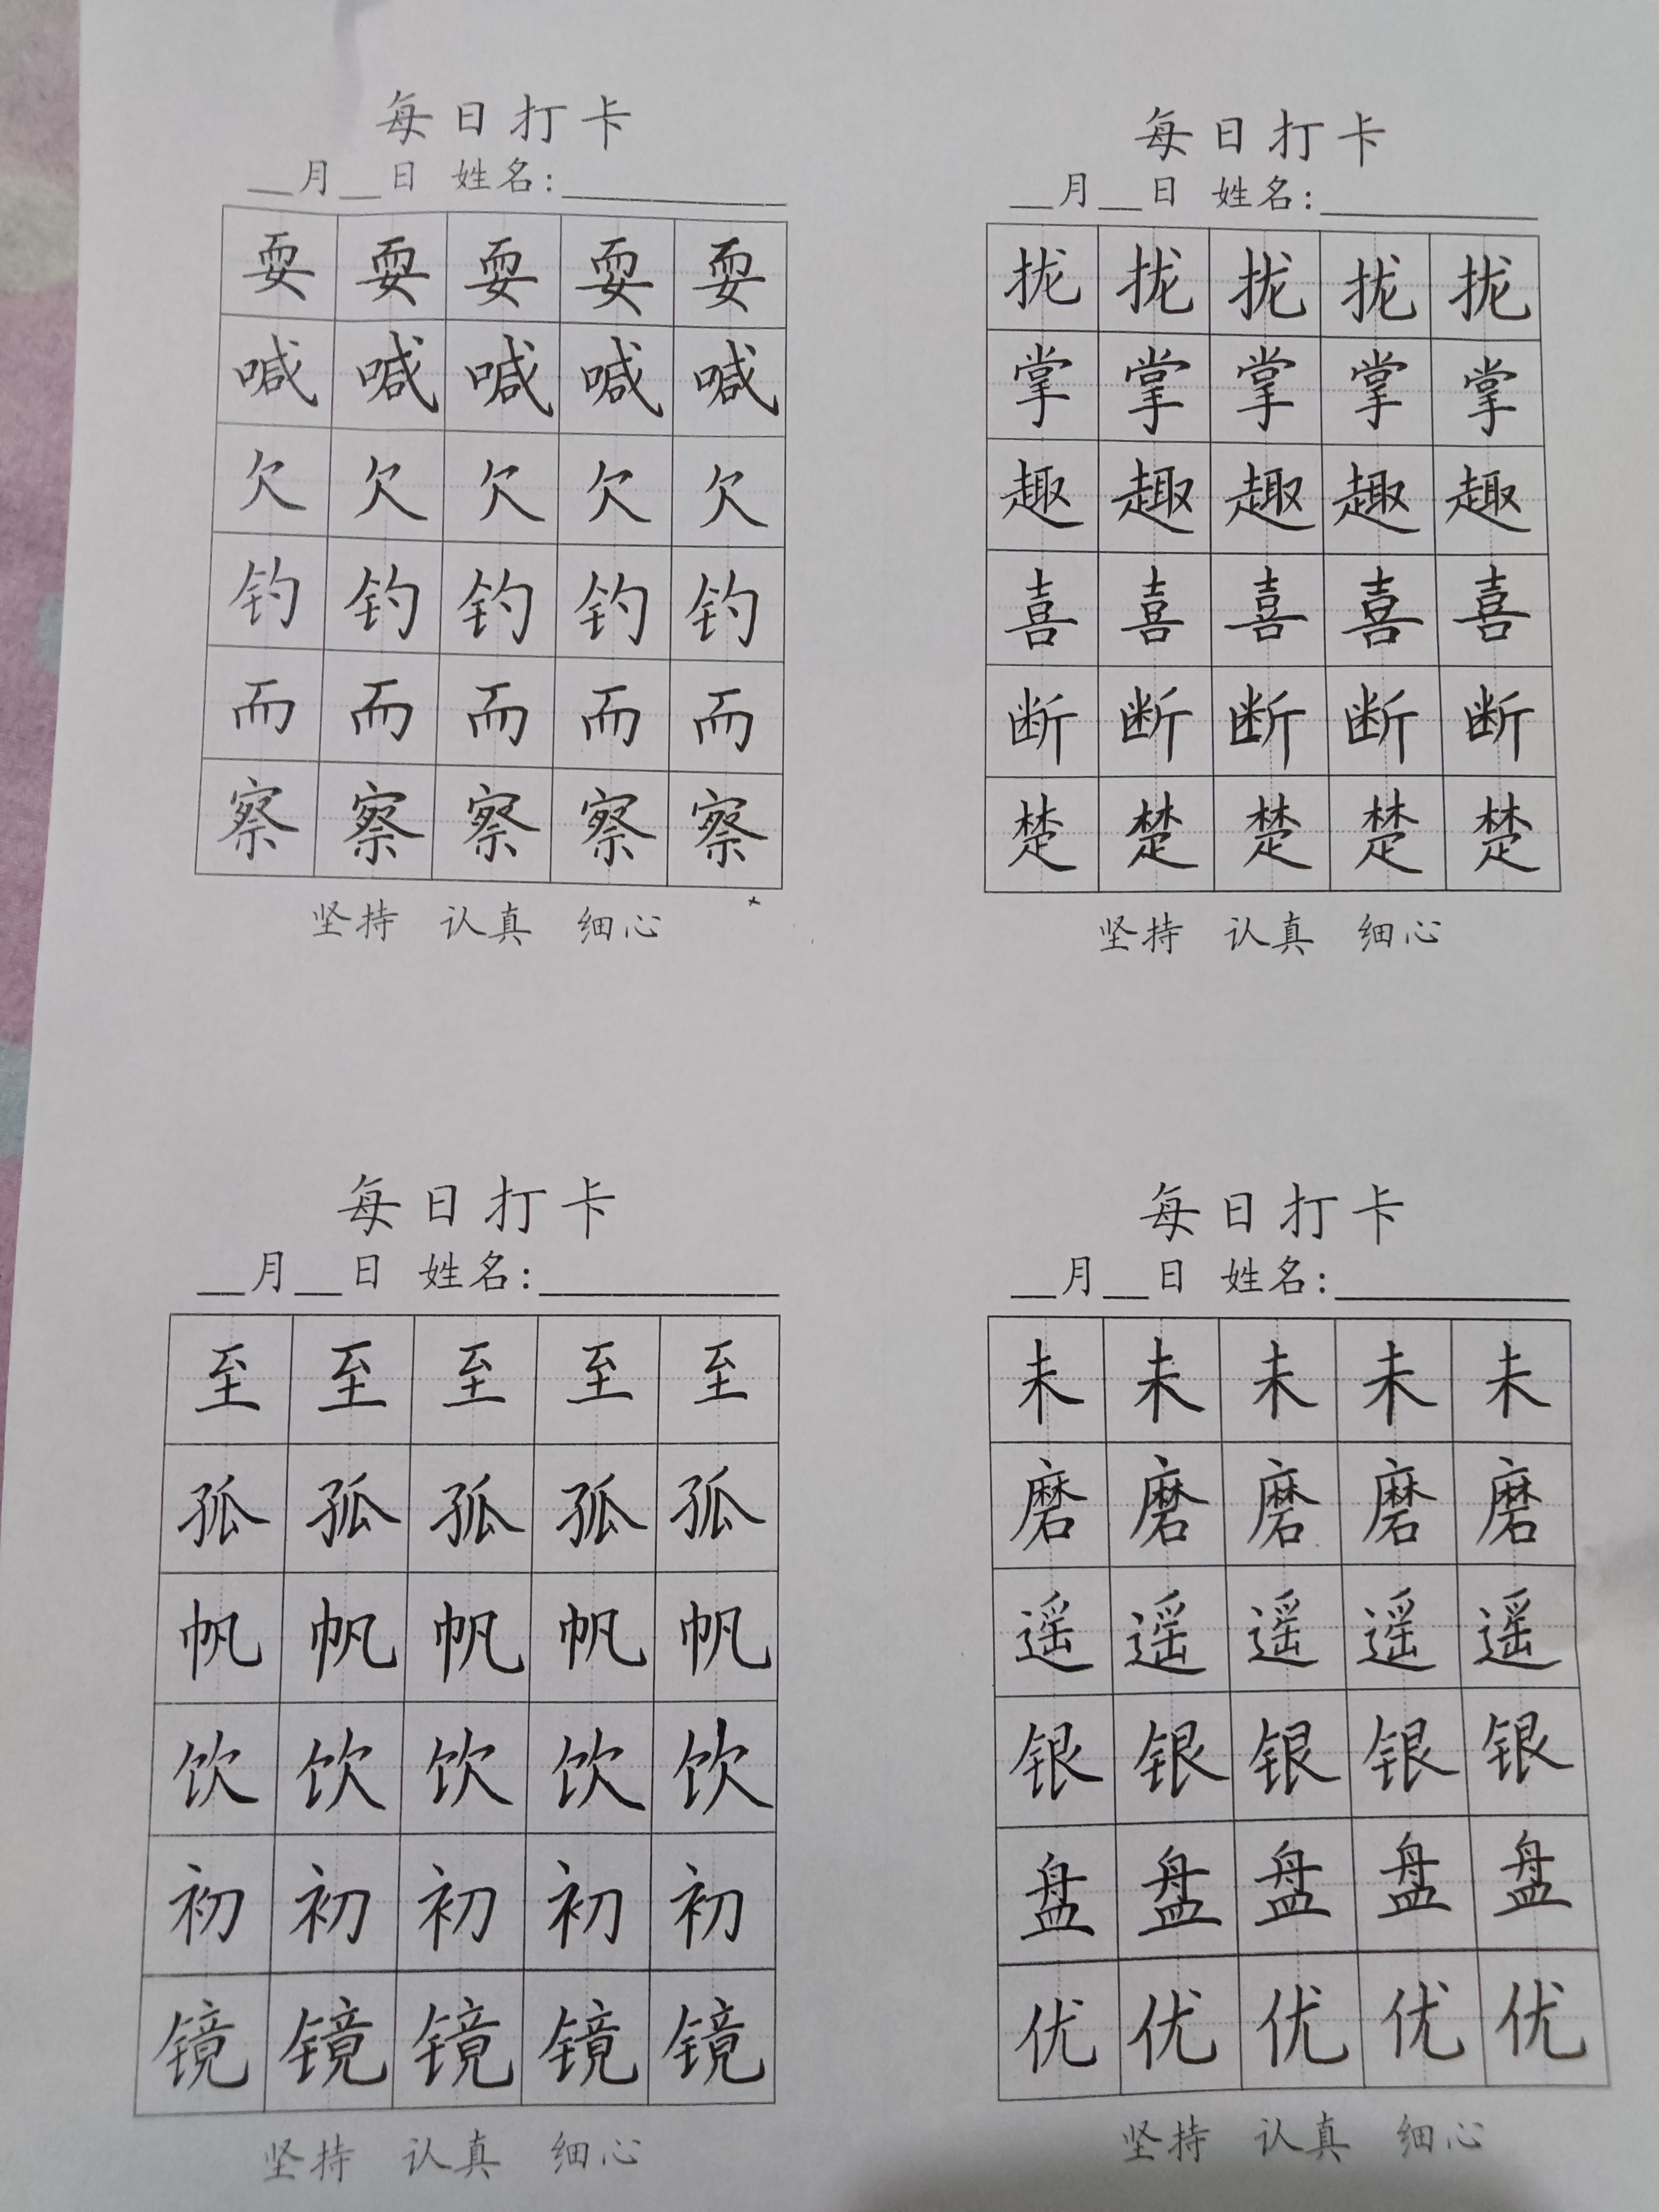 每日打卡
__月__日 姓名:__________
耍 耍 耍 耍 耍
喊 喊 喊 喊 喊
欠 欠 欠 欠 欠
钓 钓 钓 钓 钓
而 而 而 而 而
察 察 察 察 察
坚持 认真 细心
每日打卡
__月__日 姓名:__________
拢 拢 拢 拢 拢
掌 掌 掌 掌 掌
趣 趣 趣 趣 趣
喜 喜 喜 喜 喜
断 断 断 断 断
楚 楚 楚 楚 楚
坚持 认真 细心
每日打卡
__月__日 姓名:__________
至 至 至 至 至
孤 孤 孤 孤 孤
帆 帆 帆 帆 帆
饮 饮 饮 饮 饮
初 初 初 初 初
镜 镜 镜 镜 镜
坚持 认真 细心
每日打卡
__月__日 姓名:__________
未 未 未 未 未
磨 磨 磨 磨 磨
遥 遥 遥 遥 遥
银 银 银 银 银
盘 盘 盘 盘 盘
优 优 优 优 优
坚持 认真 细心